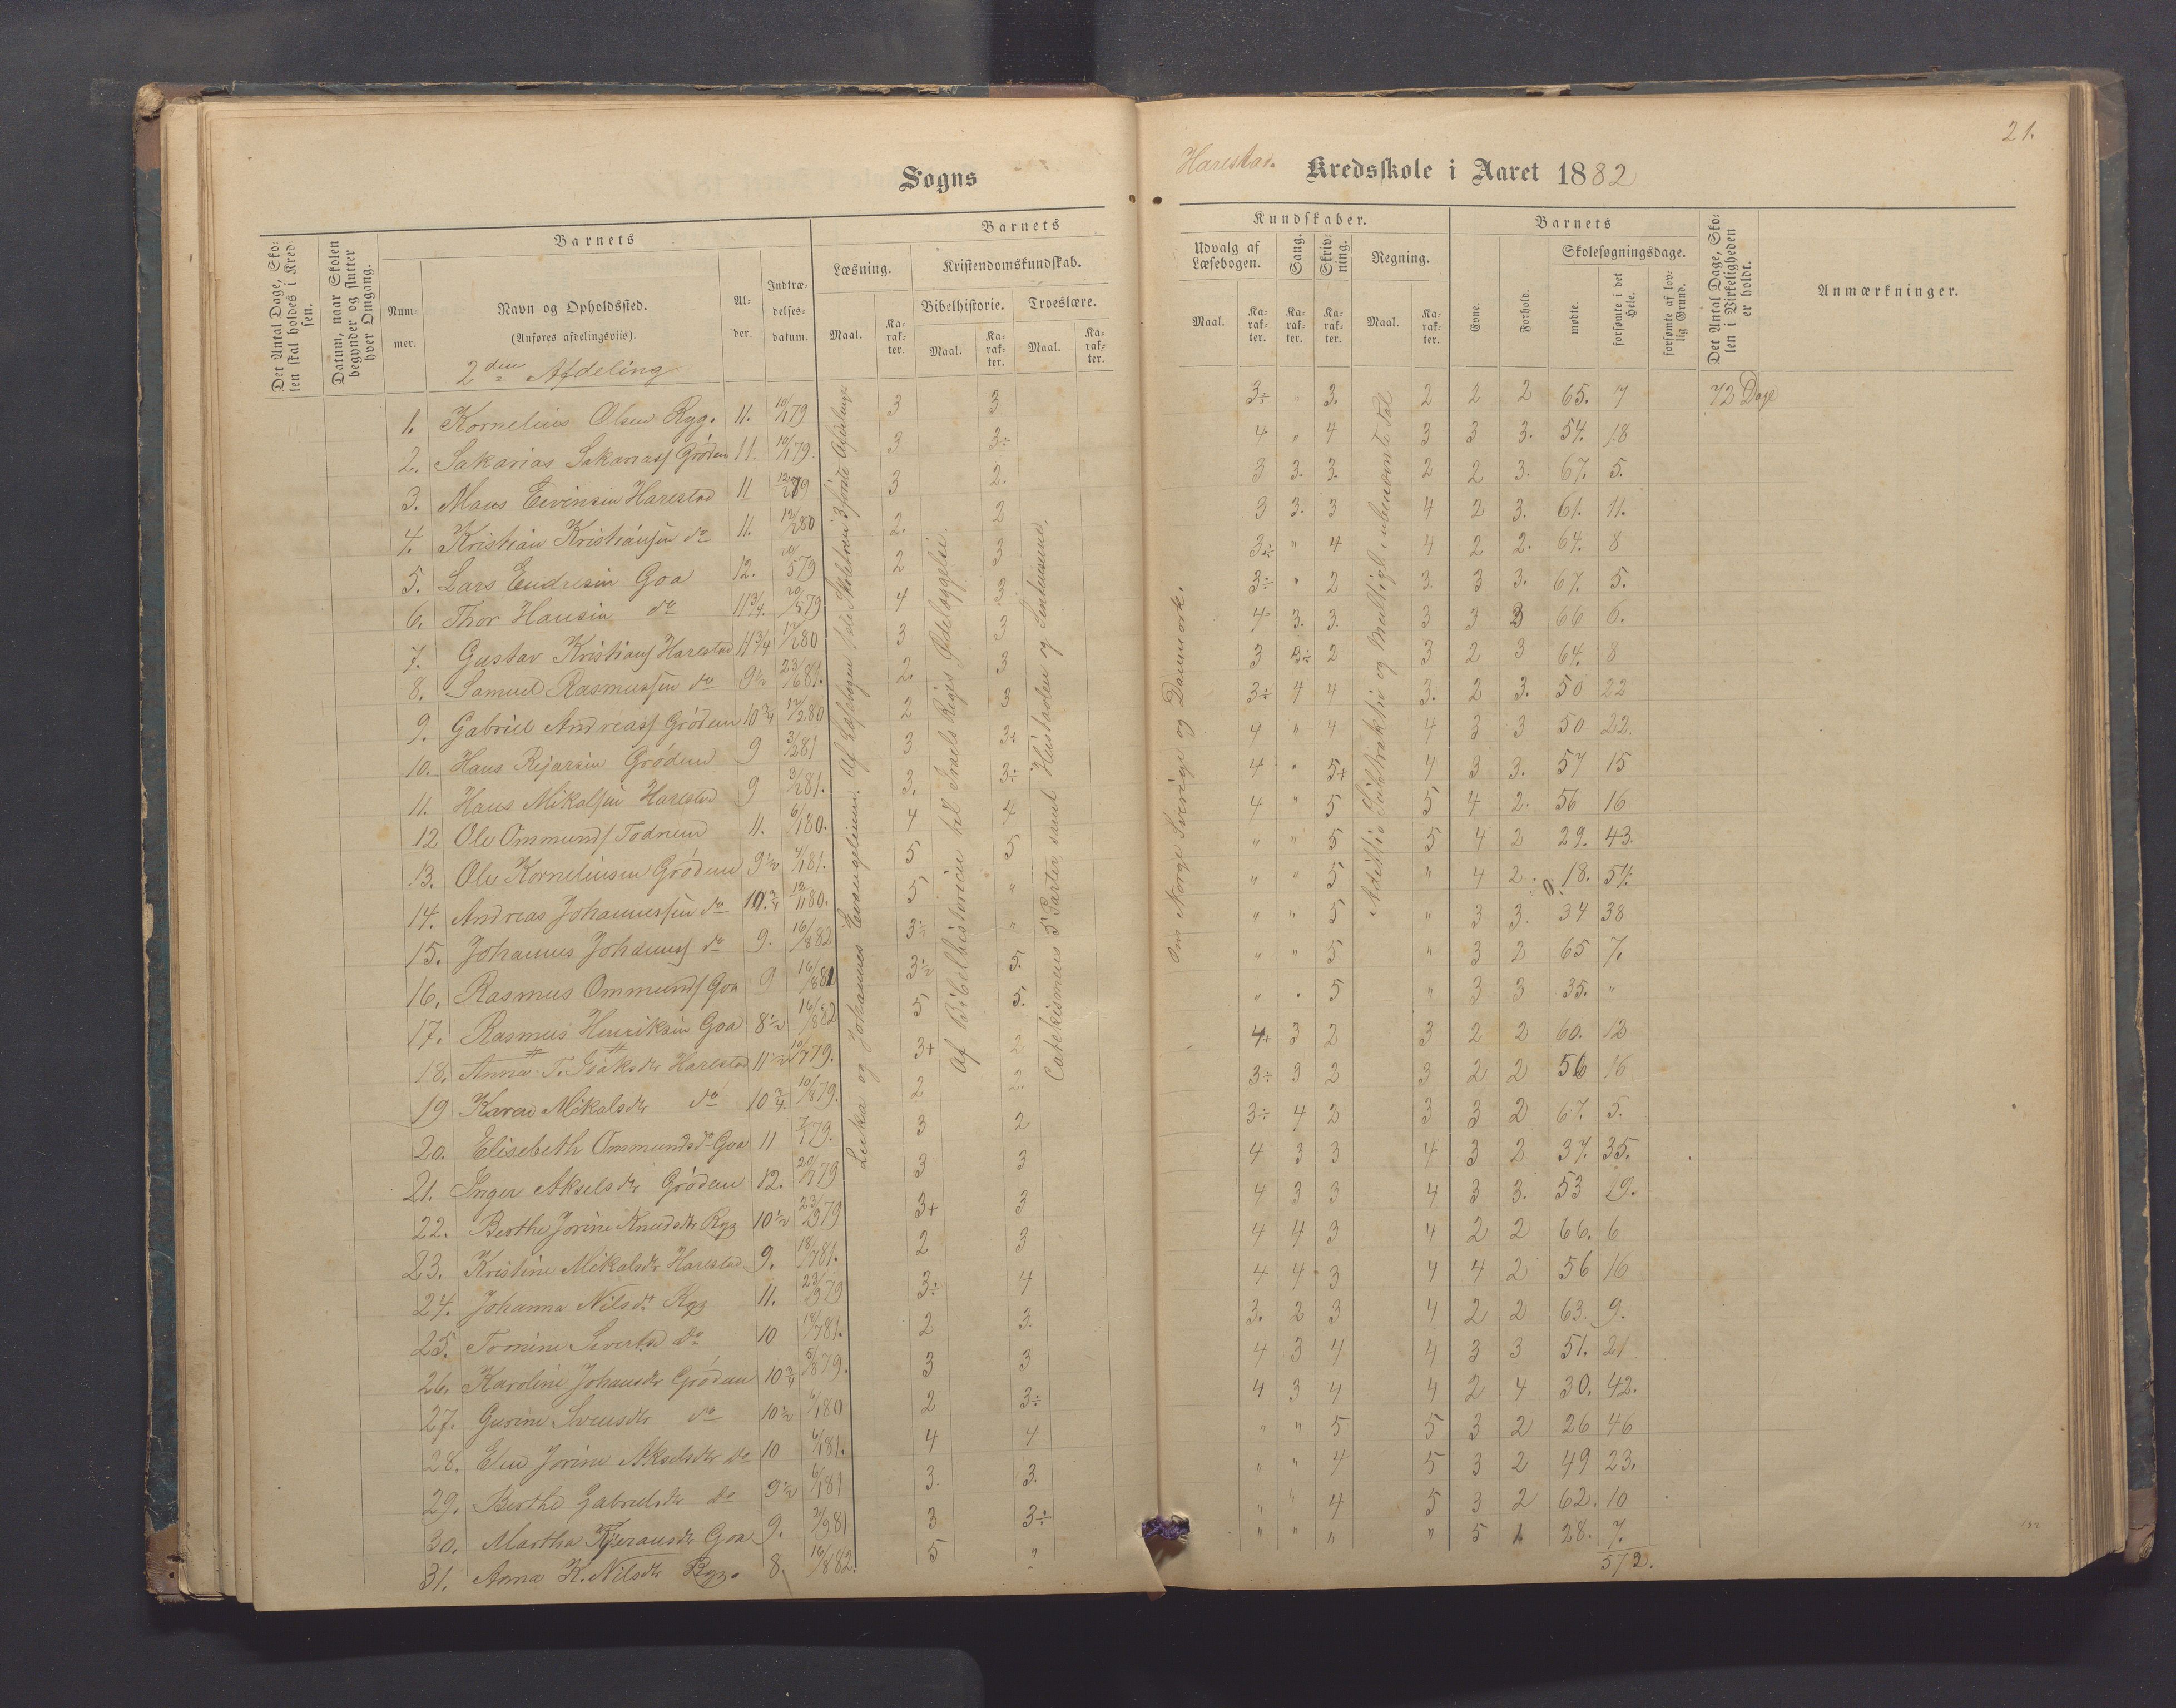 21.
Sogns
Harestad Kredsskole i Aaret 1882
Det Antal Dage, Skolen skal holdes i Kredsen.
Datum, naar Skolen begynder og slutter hver Omgang.
Barnets
Nummer.
Navn og Opholdssted.
(Anføres afdelingsviis).
Alder.
Indtrædelsesdatum.
Barnets
Læsning.
Maal.
Karakter.
Kristendomskundskab.
Bibelhistorie.
Maal.
Karakter.
Troeslære.
Maal.
Karakter.
Kundskaber.
Udvalg af Læsebogen.
Maal.
Karakter.
Sang.
Karakter.
Skrivning.
Karakter.
Regning.
Maal.
Karakter.
Barnets
Evne.
Forhold.
Skolesøgningsdage.
mødte.
forsømte i det Hele.
forsømte af lovlig Grund.
Det Antal Dage, Skolen i Virkeligheden er holdt.
Anmærkninger.
2den Afdeling
1. Kornelius Olsen Ryg. 11. 10/1 79 3 3 3÷ " 3. 2 2 2 65. 7 72 Dage
2. Sakarias Sakariasf Grødem 11. 10/1 79. 3 3÷ 4 " 4 3 3 3. 54. 18
3. Maus Eivinsen Harestad 11 12/2 79 3 2. 3 3. 3. 2 2 3. 67. 5.
4. Kristian Kristiansen do 11. 12/2 80 2. 3 3 3. 3 4 2 3. 61. 11.
5. Lars Endresen Goa 12. 20/5 79 2 3 3÷ " 4 4 2 2. 64. 8
6. Thor Hansen do 11 3/4. 20/5 79 4 3 3÷ " 2 3 3 3. 67. 5.
7. Gustav Kristiansf Harestad 11 3/4 12/2 80 3 3 4 3. 3. 3 3 3 66 6.
8. Samuel Rasmussen do 9 1/2 23/6 81. 2. 3 3 3÷ 2 3 2 3 64. 8
9. Gabriel Andreasf Grødem 10 3/4 12/2 80 2 3 3÷ 4 4 3. 2 3. 50 22
10. Hans Rejarsen Grødem 9 3/2 81 3 3+ 4 " 4 4 3 3 50 22.
11. Hans Mikalsen Harestad 9 3/2 81. 3. 3÷ 4 " 5+ 4 3 3. 57 15
12 Ole Ommundsf Todnem 11. 6/1 80. 4 4 4 " 5 5 4 2. 56 16
13. Ole Korneliusen Grødem 9 1/2 4/1 81. 5 5 " " 5 5 4 2 29. 43.
14. Andreas Johannessen do 10 3/4 12/11 80. 5 " " " 5 " 4 2. 18. 54.
15. Johannes Johannesf do 9. 16/8 82 3÷ " " " 5 " 3 3. 34 38
16. Rasmus Ommundsf Goa 9 16/8 81 3 1/2 5. " " 5 " 3 2 65 7.
17. Rasmus Henriksen Goa 8 1/2 16/8 82 5 5. " " 5 " 3 3 35. "
18. Anna T. Isaksdr Harestad 11 1/2 10/7 79. 3+ 2 4+ 3 2 3 2 2 60. 12
19 Karen Mikalsdr do 10 3/4. 10/8 79. 2 2. 3÷ 3 2 3 2 2 56 16
20. Elisebeth Ommundsdr Goa 11 7/1 79. 3 2 3÷ 4 2 3 3 2 67. 5.
21. Inger Akselsdr Grødem 12. 20/7 79 3 3 4 3 3 4 3 2 37. 35.
22. Berthe Jorine Knudsdr Ryg 10 1/2 23/3 79 3+ 3 4 3 3 4 3 3. 53 19.
23. Kristine Mikalsdr Harestad 9. 18/7 81. 2 3 4 4 3 4 2 2 66. 6
24. Johanna Nilsdr Ryg 11. 23/3 79 3÷ 4 4 4 3 4 4 2 56 16
25. Tomine Sivertsd do 10 18/7 81. 2 3. 3. 2 3 4 2 2 63. 9.
26. Karoline Johansdr Grødem 10 3/4 5/8 79. 3 3 4 3 4 4 3 3 51. 21
27. Gurine Svensdr do 10 1/2 6/1 80 2 3÷ 4 3 4 4 2 4 30. 42.
28. Elen Jorine Akselsdr do 10 6/1 81. 4 4 " " 5 5 3 2 26 46
29. Berthe Gabrielsdr do 9 1/2 6/1 81 3. 3. " " 4 5 3 2 49 23.
30. Martha Tjeransdr Goa 9. 2/9 81 3 3÷ " " 4 5 3 2 62. 10
31. Anna K. Nilsdr Ryg. 8. 16/8 82. 5 " " " " " 5 1 28. 7.
572.
Lucka og Johannes Evangelium. Af Læsebogen
Af Bibelhistorien til Israels Riges Ødelæggelse.
Catekismens 5 Parter, samt Hustavlen og Sentenserne.
Om Norge Sverige og Danmark.
Addition Subtraktion og Multipl. i ubenævnte Tal